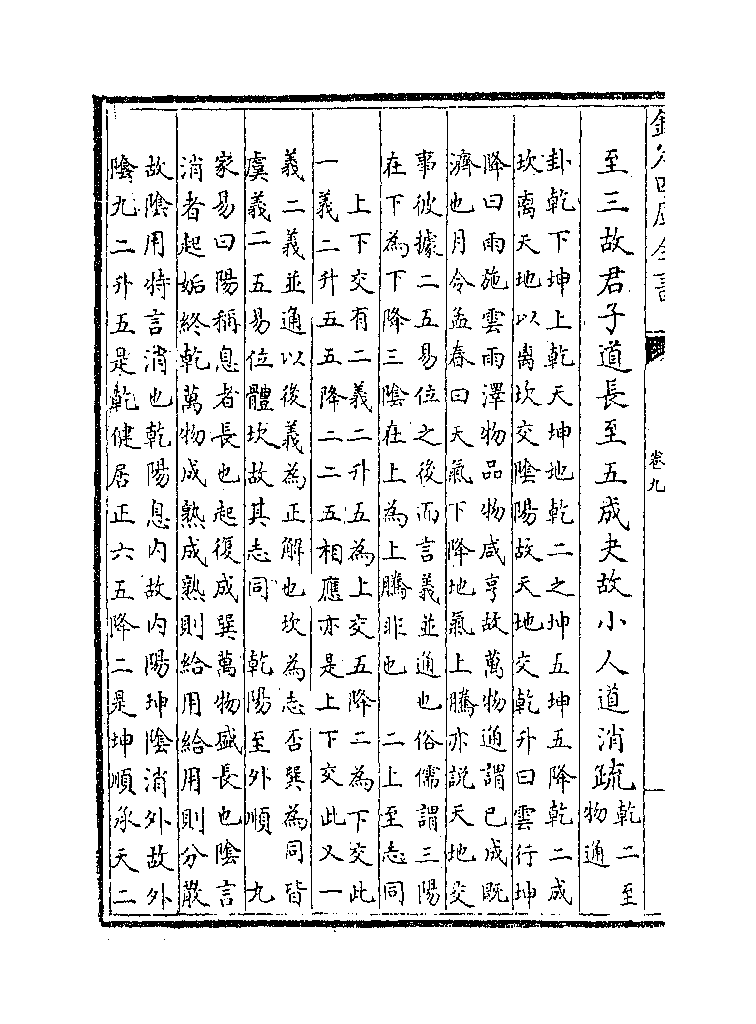 欽定四庫全書
卷九
至三故君子道長至五成夬故小人道消疏
乾二至
物通
卦乾下坤上乾天坤地乾二之坤五坤五降乾二成
坎离天地以离坎交陰陽故天地交乾升曰雲行坤
降曰雨施雲雨澤物品物咸亨故萬物通謂已成既
濟也月令孟春曰天氣下降地氣上騰亦說天地交
事彼據二五易位之後而言義並通也俗儒謂三陽
在下為下降三陰在上為上騰非也　二上至志同
上下交有二義二升五為上交五降二為下交此
一義二升五五降二二五相應亦是上下交此又一
義二義並通以後義為正解也坎為志否巽為同皆
虞義二五易位體坎故其志同　乾陽至外順　九
家易曰陽稱息者長也起復成巽萬物盛長也陰言
消者起姤終乾萬物成熟成熟則給用給用則分散
故陰用特言消也乾陽息内故内陽坤陰消外故外
陰九二升五是乾健居正六五降二是坤順承天二